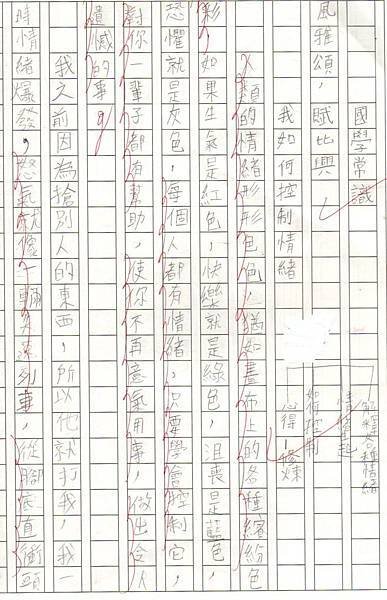 國學常識
風雅頌,賦比興
我如何控制情緒
人類的情緒形形色色,猶如畫布上的各種繽紛色
彩,如果生氣是紅色,快樂就是綠色,沮喪是藍色,
恐懼就是灰色,每個人都有情緒,只要學會控制它,
對你一輩子都有幫助,使你不再意氣用事,做出令人
遺憾的事。
我之前因為搶別人的東西,所以他就打我,我一
時情緒爆發,怒氣就像一輛火速列車,從腳底直衝頭
解釋各種情緒
如何控制
心得—修煉